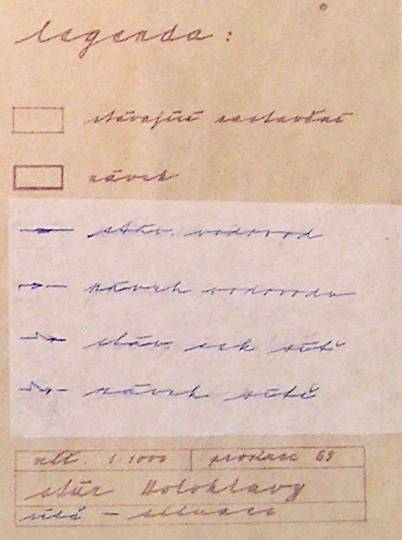 legenda:
stávající zastavění
návrh
stáv. vodovod
návrh vodovodu
stáv. sek sítě
návrh sítě
měř. 1:1000 prosinec 69
stúz Holohlavy
sítě - situace